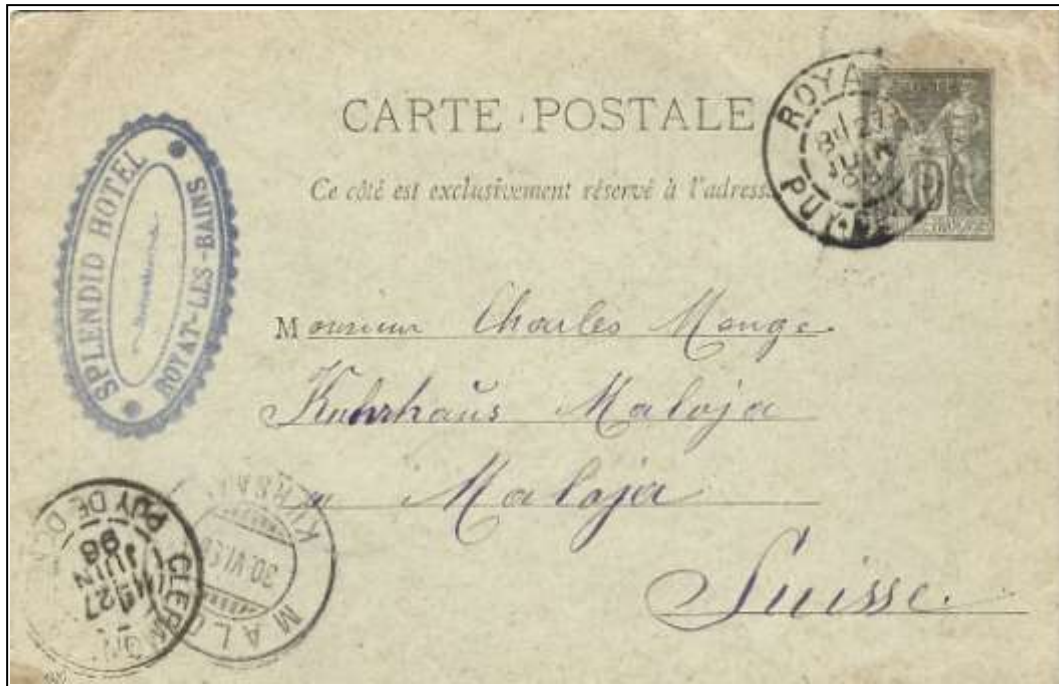 CARTE POSTALE
Ce côté est exclusivement réservé à l'adresse
SPLENDID HOTEL
ROYAT-LES-BAINS
ROYA
27
JUIN
PUY-DE
Monsieur Charles Monge
Kuhrhaüs Maloja
a Maloja
Suisse.
CLERMON
PUY DE D
27
JUIN
98
MALO
KURSAA
30.VI.